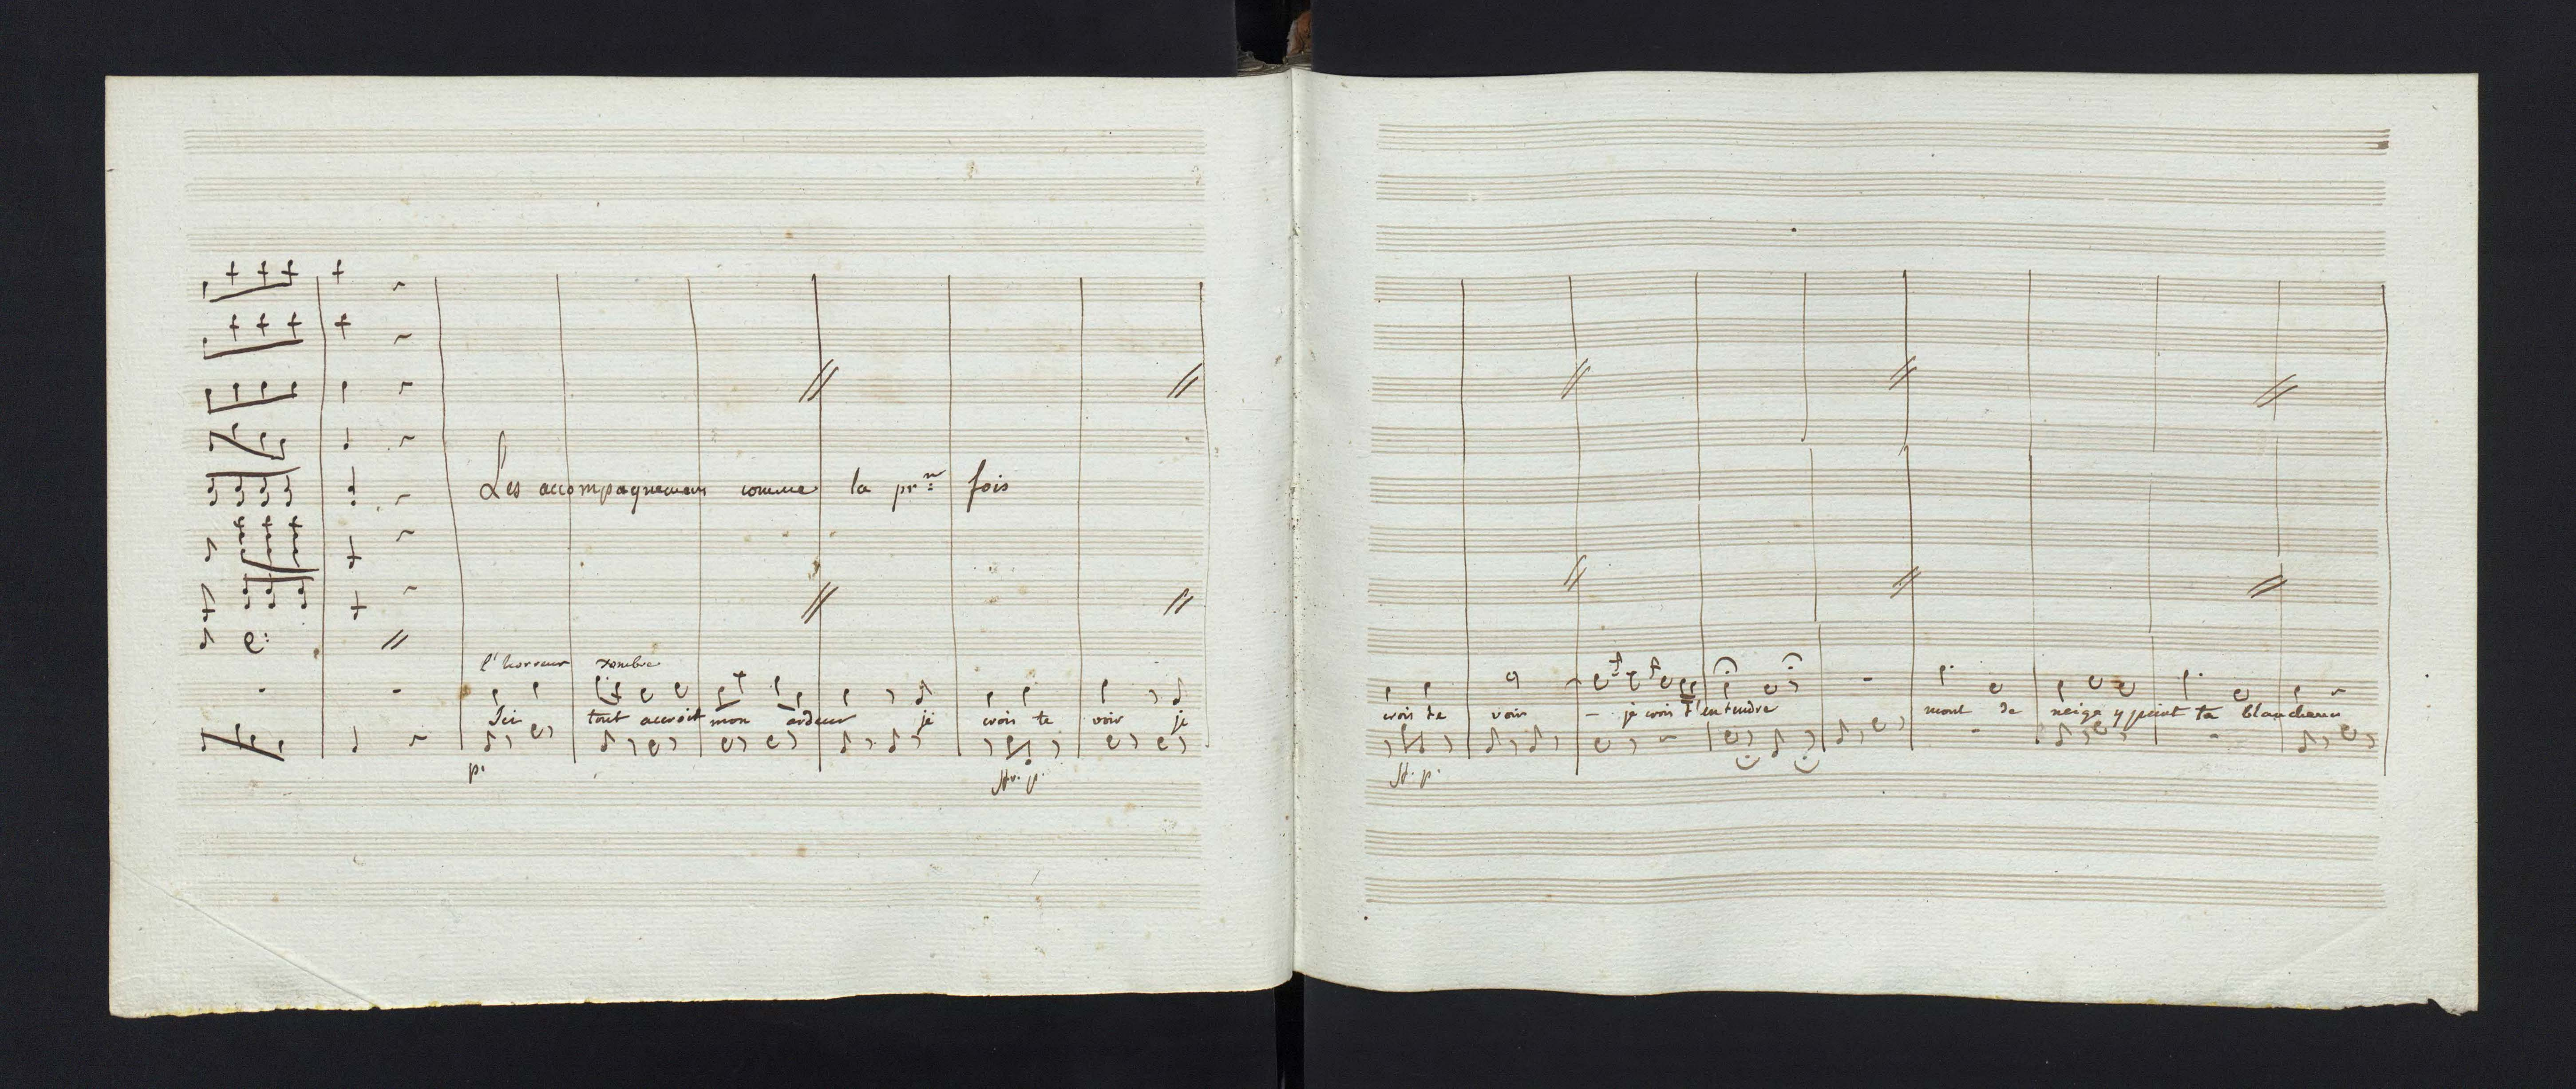 Les accompagnemens comme la pr.re fois
l'horreur sombre
Ici tout accroit mon ardeur je crois te voir je
p.
sf. p.
crois te voir – je crois t'entendre mont de neige y peint ta blancheur
sf. p.